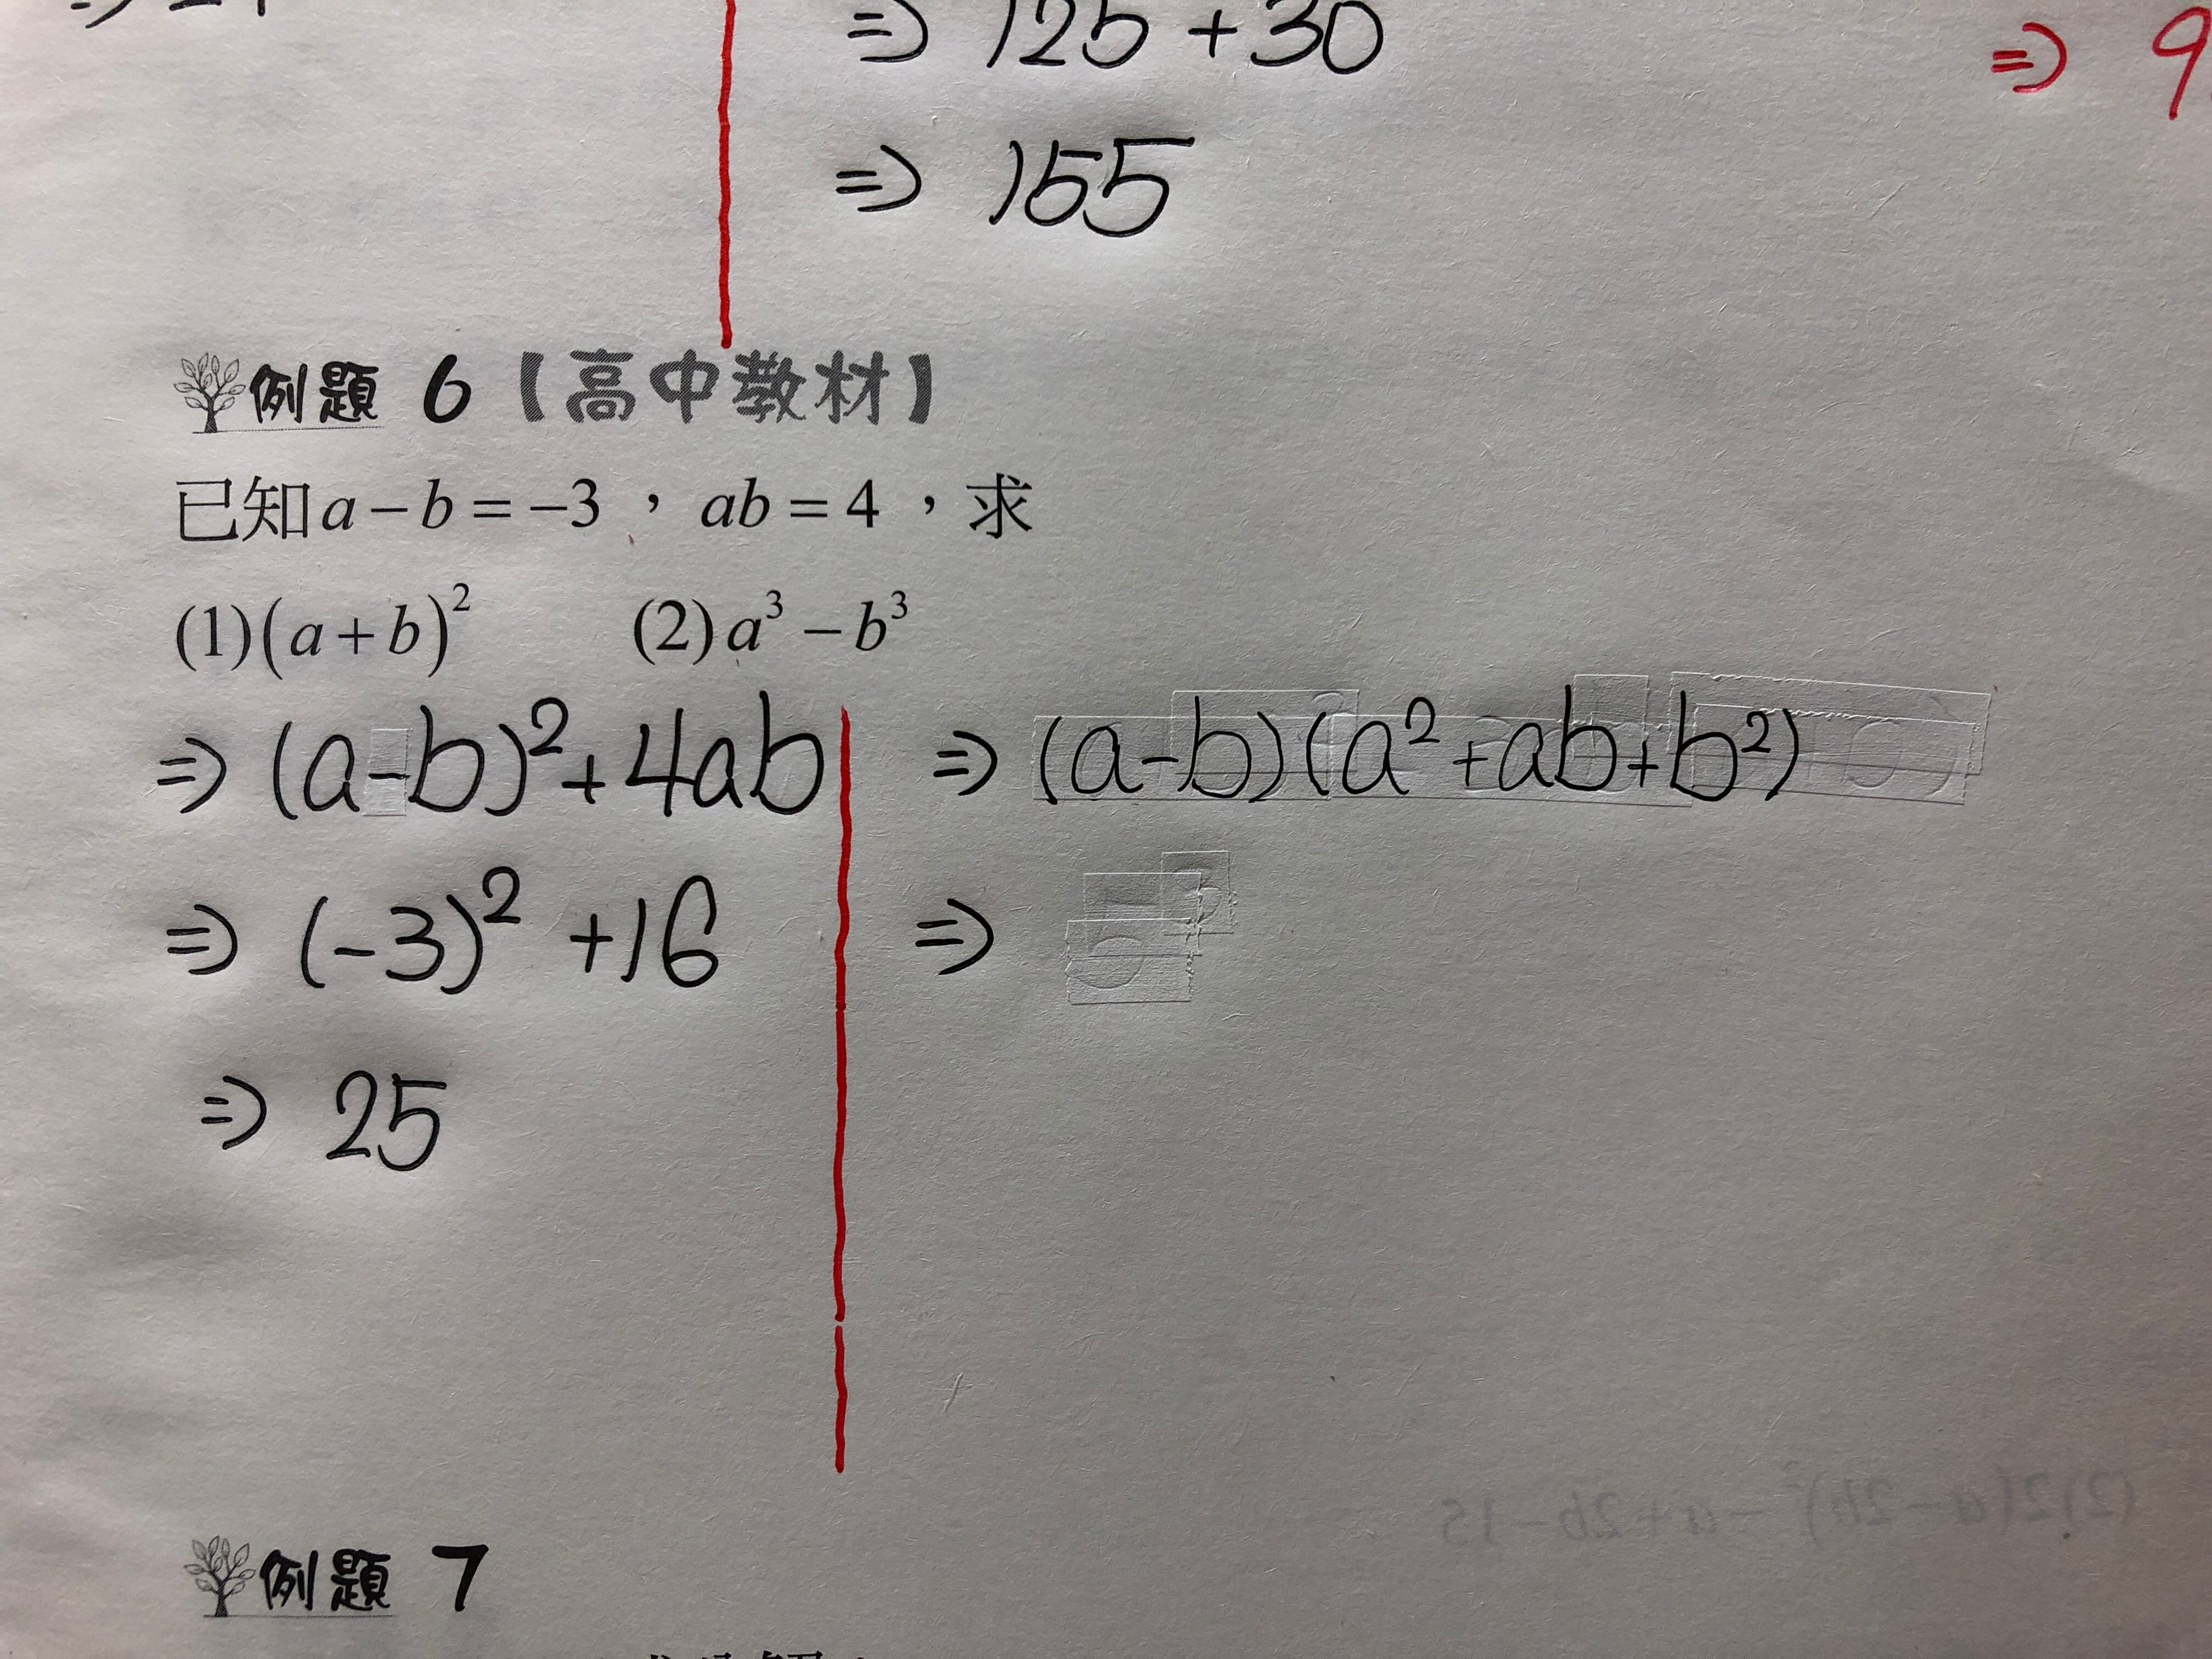 ⇒ 125 + 30
⇒ 9
⇒ 155
例題 6【高中教材】
已知a − b = −3 ， ab = 4 ，求
(1)(a + b)² (2)a³ − b³
⇒ (a-b)²+4ab
⇒ (-3)² +16
⇒ 25
⇒ (a-b)(a²+ab+b²)
⇒
(2)2(a−2b)²−a+2b−15
例題 7